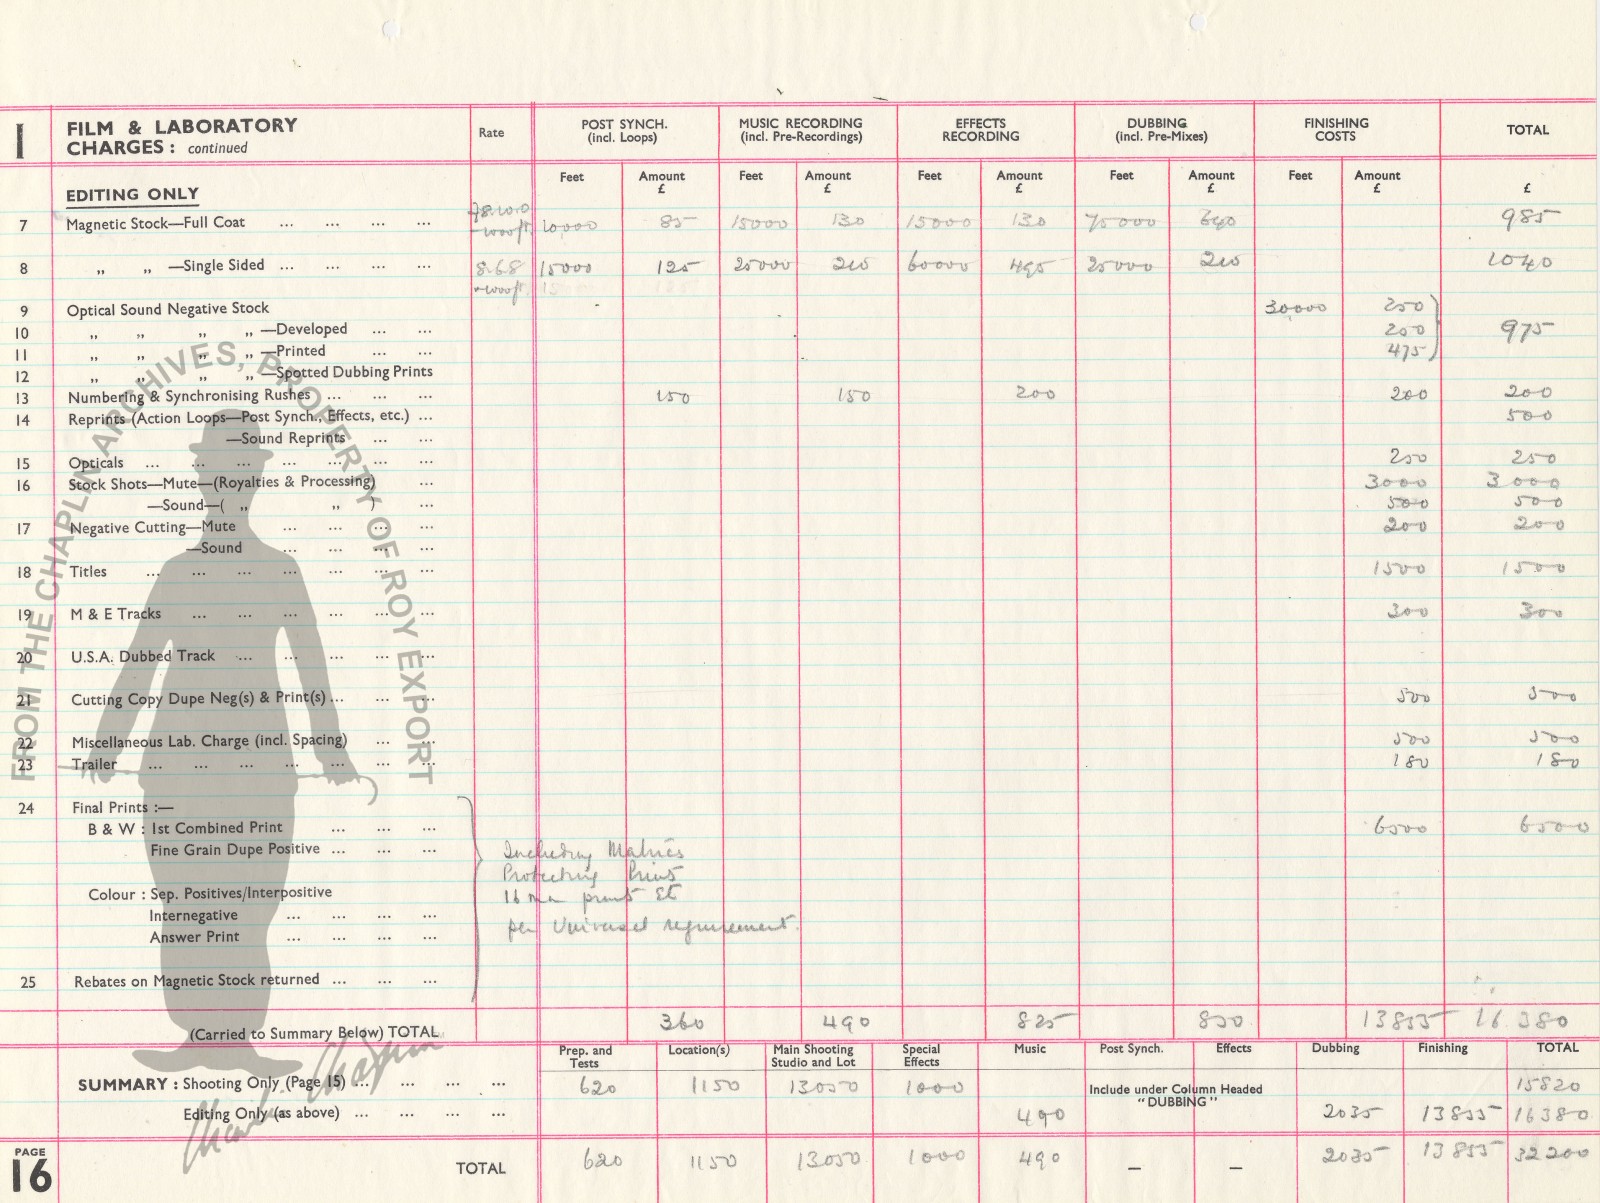 I FILM & LABORATORY CHARGES : continued Rate POST SYNCH. (incl. Loops) MUSIC RECORDING (incl. Pre-Recordings) EFFECTS RECORDING DUBBING (incl. Pre-Mixes) FINISHING COSTS TOTAL
EDITING ONLY Feet Amount £ Feet Amount £ Feet Amount £ Feet Amount £ Feet Amount £ £
7 Magnetic Stock—Full Coat ... ... ... ... 10,000 85 15000 130 15000 130 75000 640 985
8 „ „ —Single Sided ... ... ... ... 8.6.8 15000 125 25000 210 60000 495 25000 210 1040
9 Optical Sound Negative Stock 30,000 250
10 „ „ „ „ —Developed ... ... 250 975
11 „ „ „ „ —Printed ... ... 475
12 „ „ „ „ —Spotted Dubbing Prints
13 Numbering & Synchronising Rushes ... ... ... 150 150 200 200 200
14 Reprints (Action Loops—Post Synch., Effects, etc.) ... 500
—Sound Reprints ... ...
15 Opticals ... ... ... ... ... ... ... 250 250
16 Stock Shots—Mute—(Royalties & Processing) ... 3000 3000
—Sound—( „ „ ) ... 500 500
17 Negative Cutting—Mute ... ... ... ... 200 200
—Sound ... ... ... ...
18 Titles ... ... ... ... ... ... ... 1500 1500
19 M & E Tracks ... ... ... ... ... ... 300 300
20 U.S.A. Dubbed Track ... ... ... ... ...
21 Cutting Copy Dupe Neg(s) & Print(s) ... ... ... 500 500
22 Miscellaneous Lab. Charge (incl. Spacing) ... ... 500 500
23 Trailer ... ... ... ... ... ... ... 180 180
24 Final Prints :—
B & W : 1st Combined Print ... ... ... 6500 6500
Fine Grain Dupe Positive ... ... ... Including Matrices
Protecting Prints
Colour : Sep. Positives/Interpositive 16 mm prints Etc
Internegative ... ... ... ...
Answer Print ... ... ... ... per Universal requirement.
25 Rebates on Magnetic Stock returned ... ... ...
(Carried to Summary Below) TOTAL 360 490 825 850 13855 16380
Prep. and Tests Location(s) Main Shooting Studio and Lot Special Effects Music Post Synch. Effects Dubbing Finishing TOTAL
SUMMARY : Shooting Only (Page 15) ... ... ... ... 620 1150 13050 1000 Include under Column Headed "DUBBING" 15820
Editing Only (as above) ... ... ... ... 490 2035 13855 16380
PAGE 16 TOTAL 620 1150 13050 1000 490 — — 2035 13855 32200
FROM THE CHAPLIN ARCHIVES, PROPERTY OF ROY EXPORT
Charlie Chaplin